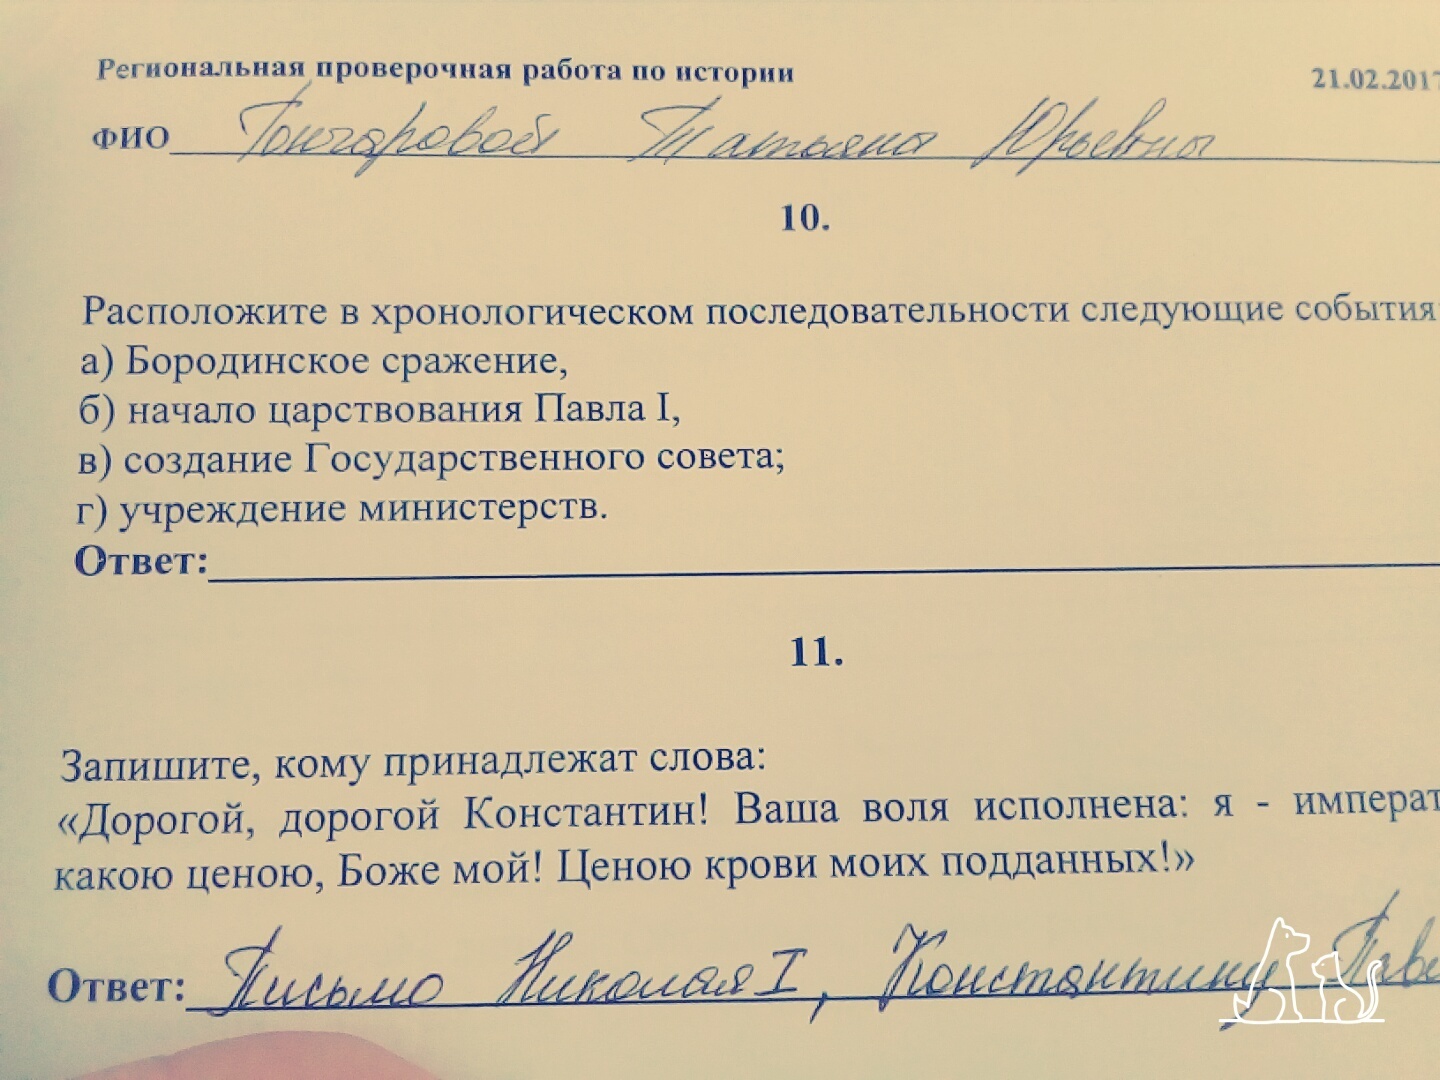 Региональная проверочная работа по истории 21.02.2017
ФИО Гончаровой Татьяны Юрьевны
10.
Расположите в хронологическом последовательности следующие события:
а) Бородинское сражение,
б) начало царствования Павла I,
в) создание Государственного совета;
г) учреждение министерств.
Ответ:
11.
Запишите, кому принадлежат слова:
«Дорогой, дорогой Константин! Ваша воля исполнена: я - императ
какою ценою, Боже мой! Ценою крови моих подданных!»
Ответ: Письмо Николая I, Константину Павл